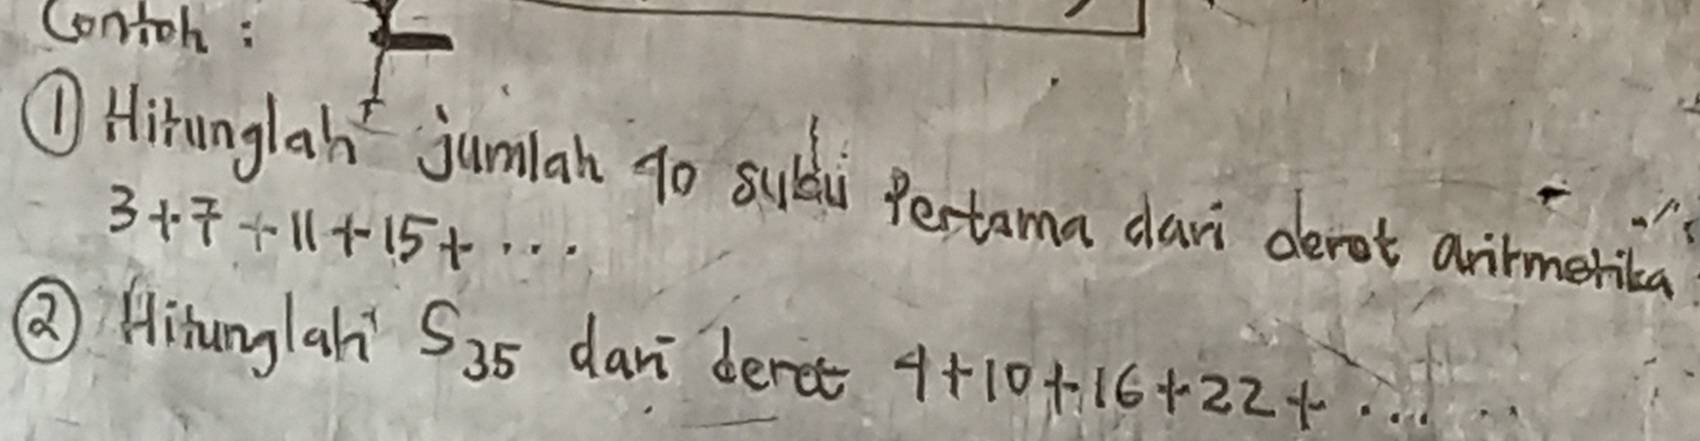 Contoh :
① Hitunglah jumlah 40 suku Pertama dari deret aritmetika
3 + 7 + 11 + 15 + ...
② Hitunglah S35 dari deret 4 + 10 + 16 + 22 + ......